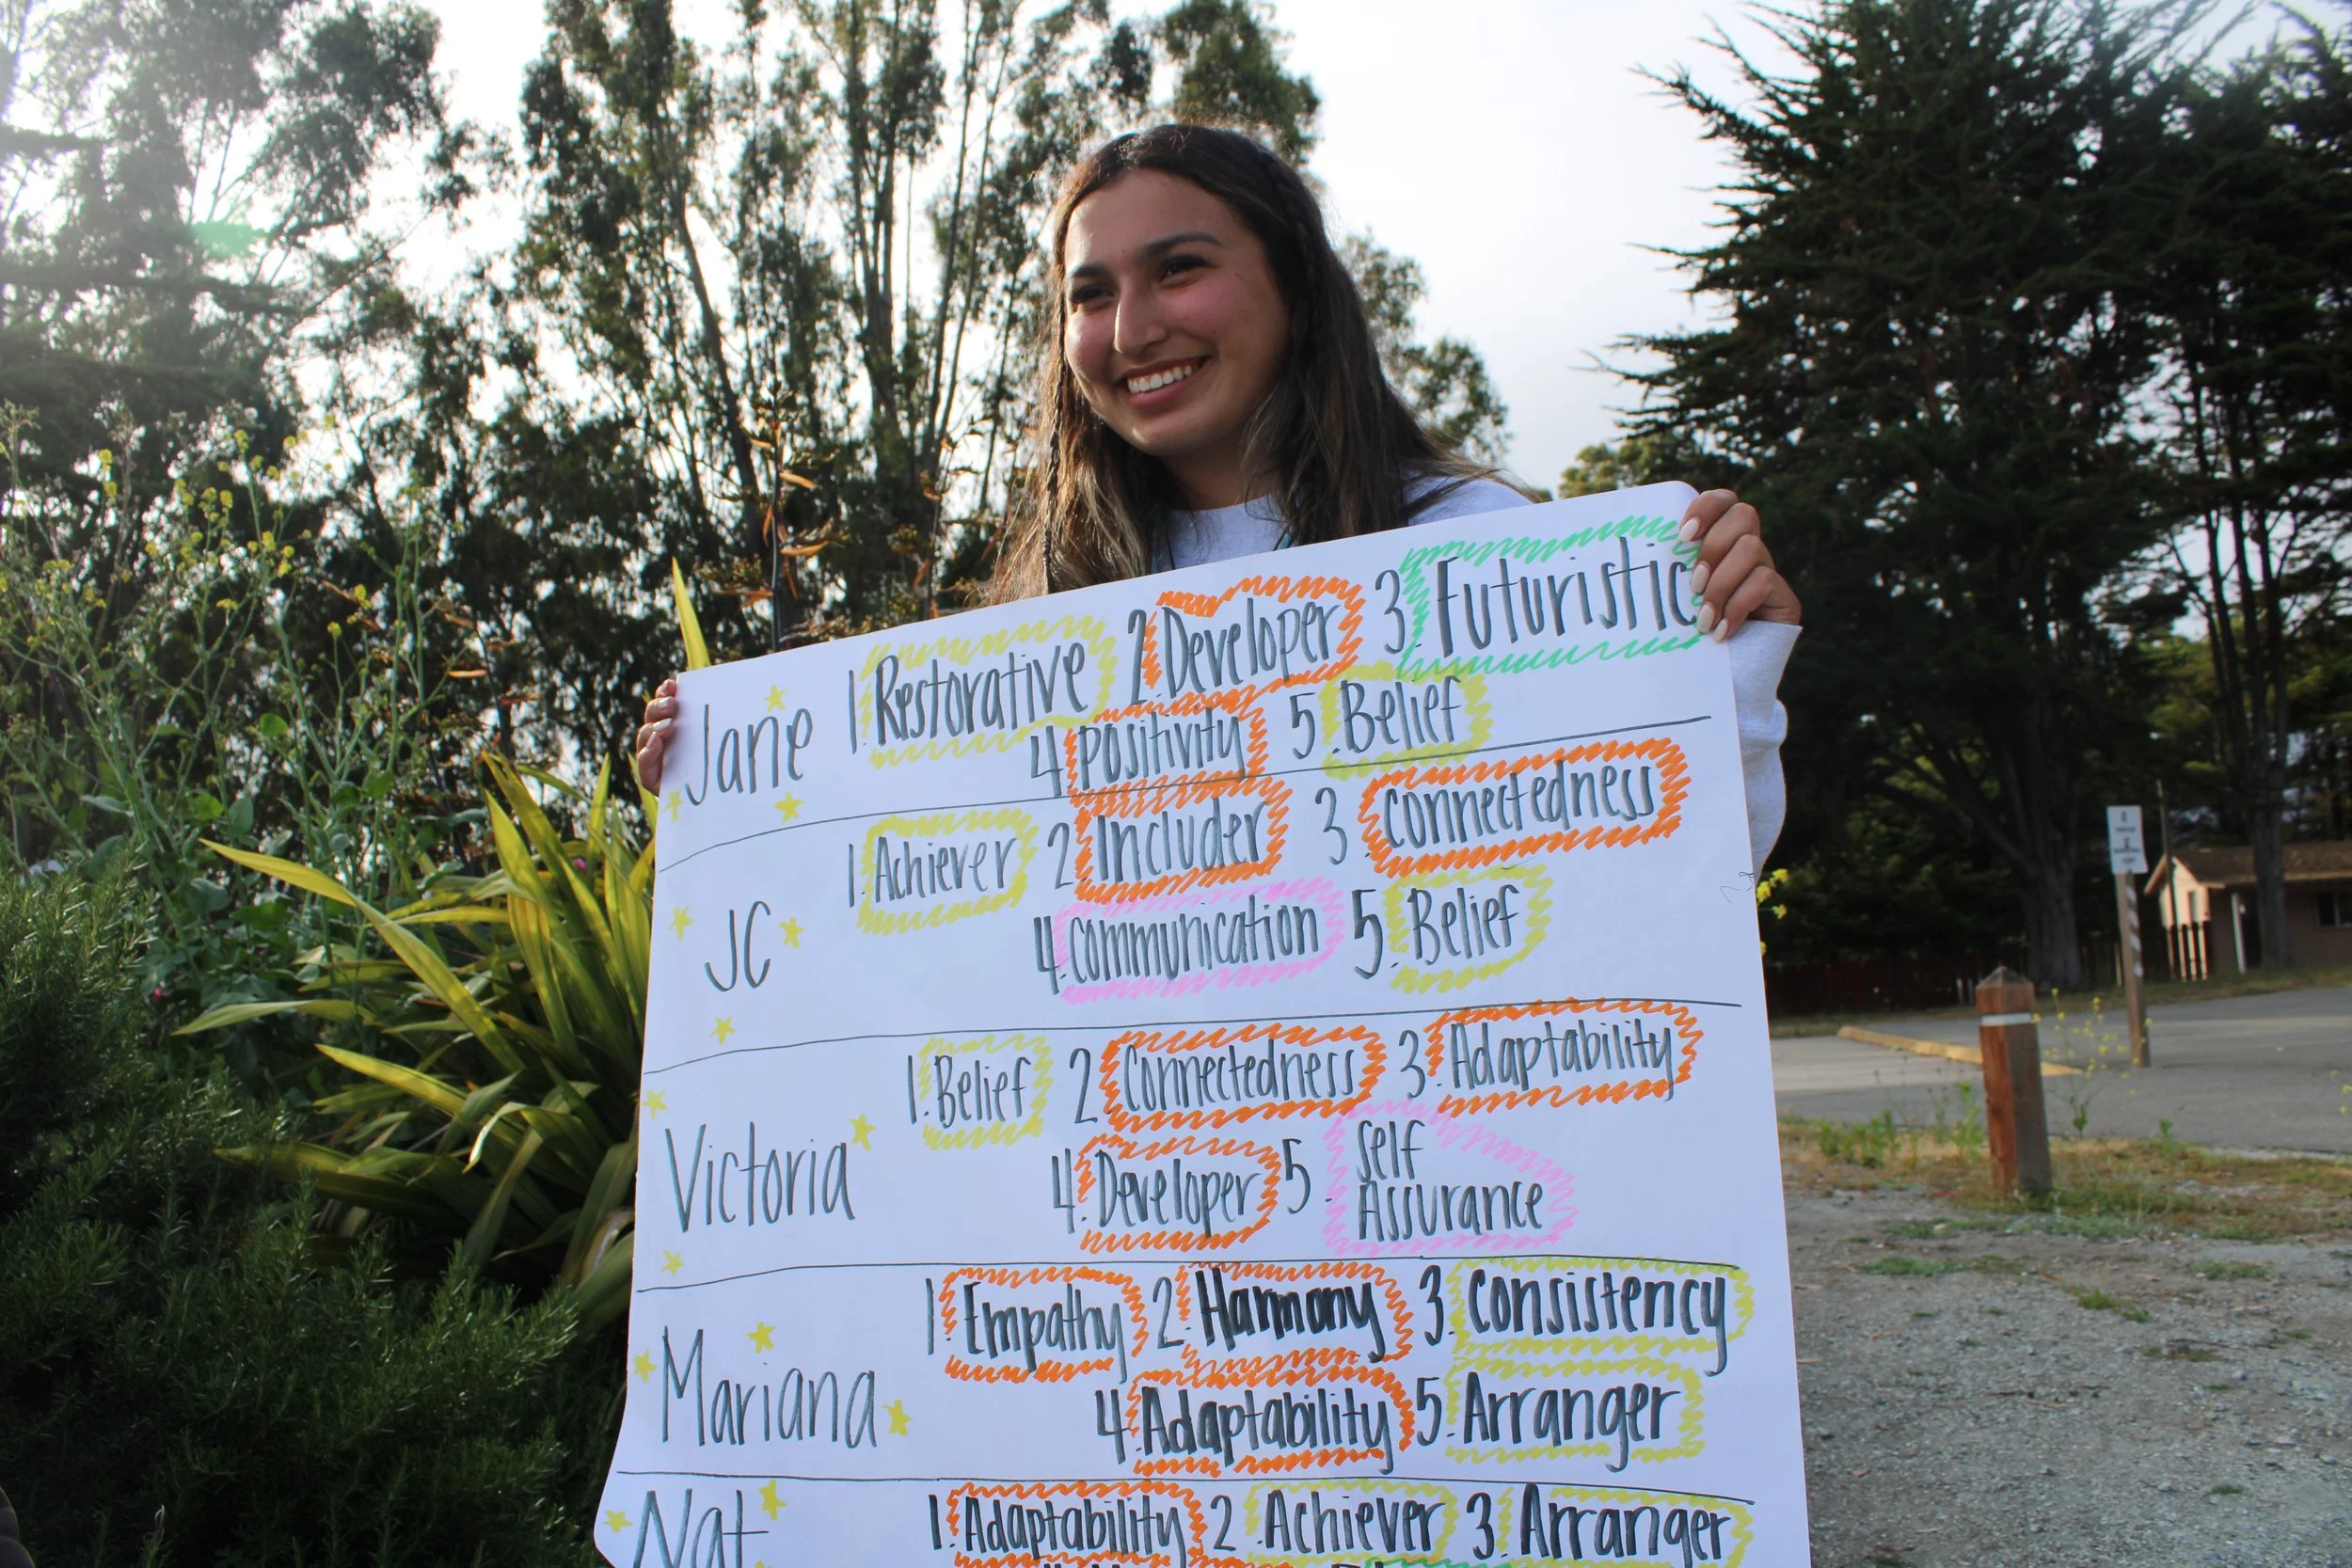 Jane 1. Restorative 2. Developer 3. Futuristic
4. Positivity 5. Belief
1. Achiever 2. Includer 3. Connectedness
JC 4. Communication 5. Belief
1. Belief 2. Connectedness 3. Adaptability
Victoria 4. Developer 5. Self
Assurance
1. Empathy 2. Harmony 3. Consistency
Mariana 4. Adaptability 5. Arranger
Nat 1. Adaptability 2. Achiever 3. Arranger